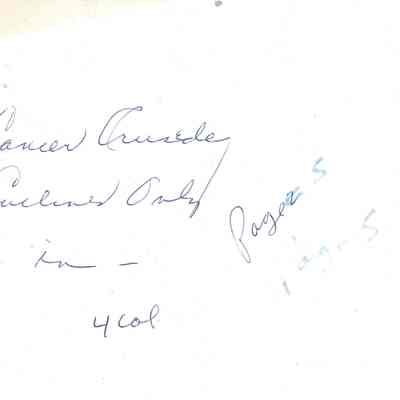 Cancer Crusade
Outlines Only
in -
4 col
Page 5
Page 5